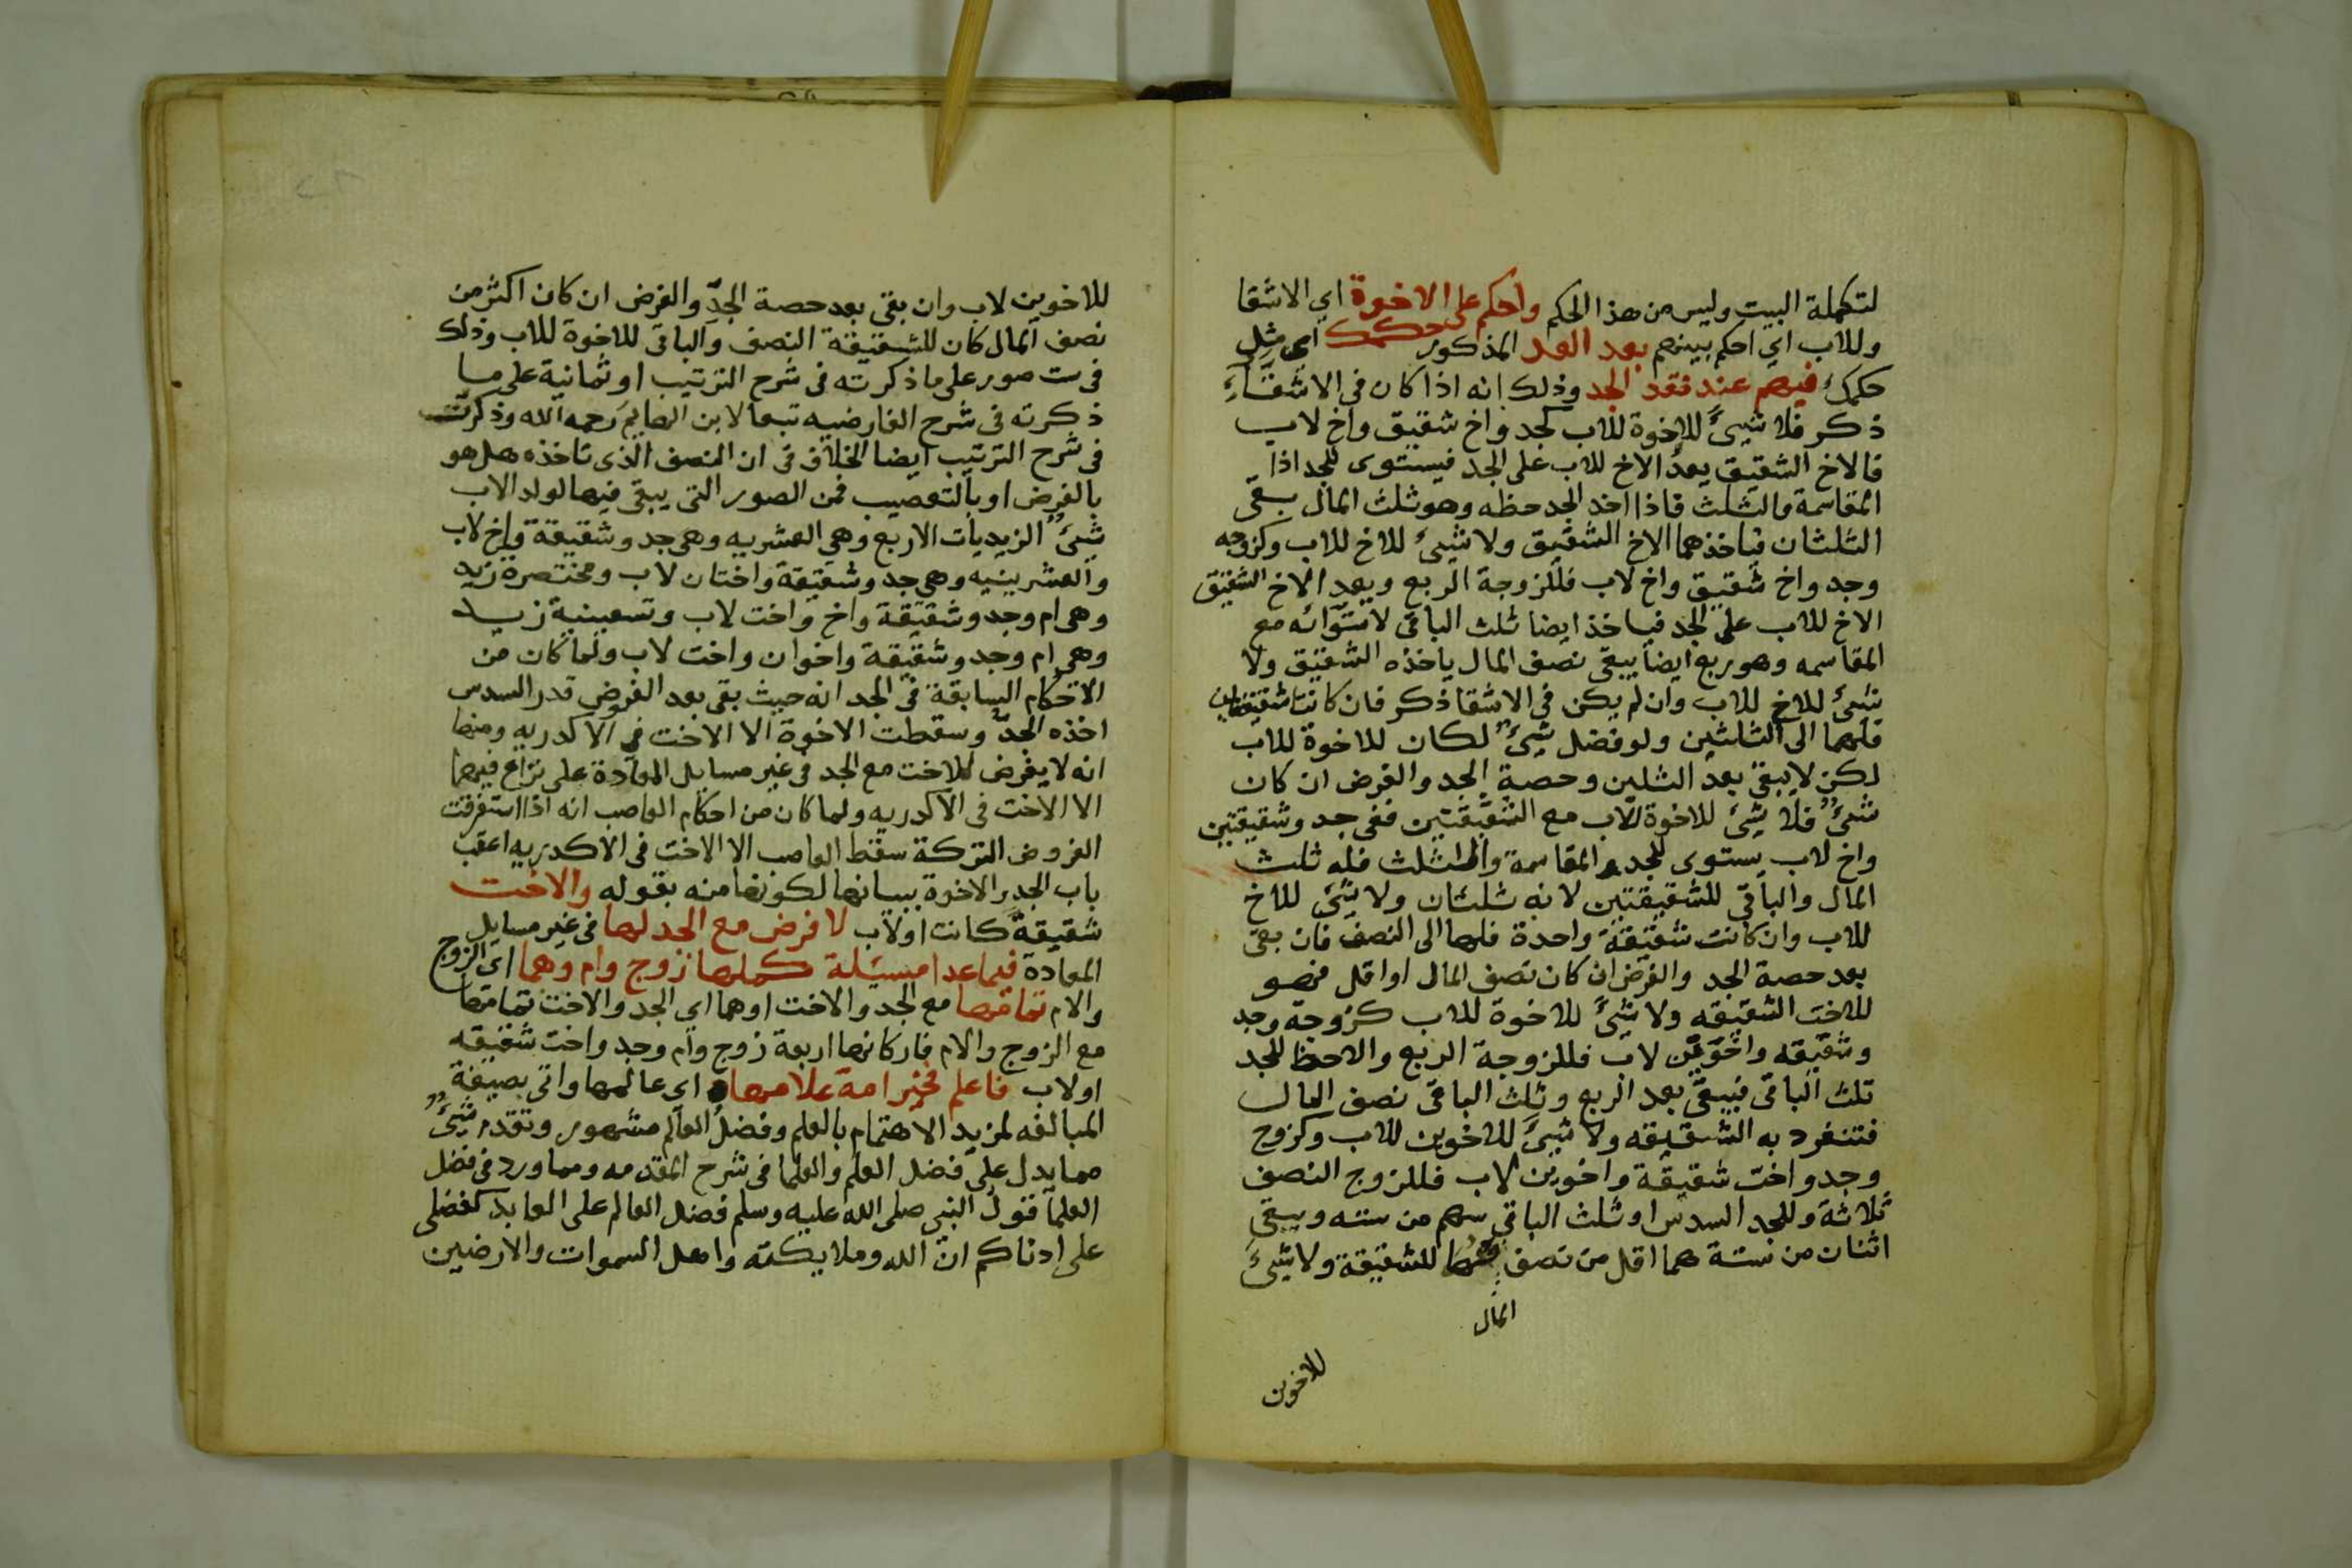 لتكملة البيت وليس من هذا الحكم واحكم على الاخوة اي الاشقا
وللاب اي احكم بينهم بعد العد المذكور حكمك اي مثل
حكمك فيهم عند فقد الجد وذلك انه اذا كان في الاشقاء
ذكر فلا شيئ للاخوة للاب كجد واخ شقيق واخ لاب
فالاخ الشقيق يعد الاخ للاب على الجد فيستوى للجد اذا
المقاسمة والثلث فاذا اخذ الجد حظه وهو ثلث المال بقى
الثلثان فياخذهما الاخ الشقيق ولا شيئ للاخ للاب وكزوجه
وجد واخ شقيق واخ لاب فللزوجة الربع ويعد الاخ الشقيق
الاخ للاب على الجد فياخذ ايضا ثلث الباقى لاستوائه مع
المقاسمه وهو ربع ايضا يبقى نصف المال ياخذه الشقيق ولا
شيئ للاخ للاب وان لم يكن في الاشقا ذكر فان كانتا شقيقتان
فلهما الى الثلثين ولو فضل شيئ لكان للاخوة للاب
لكن لا يبقى بعد الثلثين وحصة الجد والفرض ان كان
شيئ فلا شيئ للاخوة للاب مع الشقيقتين ففى جد وشقيقتين
واخ لاب يستوى للجد المقاسمة والثلث فله ثلث
المال والباقى للشقيقتين لانه ثلثان ولا شيئ للاخ
للاب وان كانت شقيقة واحدة فلها الى النصف فان بقى
بعد حصة الجد والفرض ان كان نصف المال او اقل فهو
للاخت الشقيقه ولا شيئ للاخوة للاب كزوجة وجد
وشقيقه واخوين لاب فللزوجة الربع والاحظ للجد
ثلث الباقى فيبقى بعد الربع وثلث الباقى نصف المال
فتنفرد به الشقيقه ولا شيئ للاخوين للاب وكزوج
وجد واخت شقيقة واخوين لاب فللزوج النصف
ثلاثة وللجد السدس او ثلث الباقى سهم من سته ويبقى
اثنان من ستة هما اقل من نصف فهما للشقيقة ولا شيئ
المال
للاخوين
للاخوين لاب وان بقى بعد حصة الجد والفرض ان كان اكثر من
نصف المال كان للشقيقة النصف والباقى للاخوة للاب وذلك
في ست صور على ما ذكرته في شرح الترتيب او ثمانية على ما
ذكرته في شرح الفارضيه تبعا لابن الهايم رحمه الله وذكرت
في شرح الترتيب ايضا الخلاف في ان النصف الذى تاخذه هل هو
بالفرض او بالتعصيب فمن الصور التى يبقى فيها لولد الاب
شيئ الزيديات الاربع وهي العشريه وهي جد وشقيقة واخ لاب
والعشرينيه وهي جد وشقيقة واختان لاب ومختصرة زيد
وهي ام وجد وشقيقة واخ واخت لاب وتسعينية زيد
وهي ام وجد وشقيقة واخوان واخت لاب ولما كان من
الاحكام السابقة في الجد انه حيث بقى بعد الفروض قدر السدس
اخذه الجد وسقطت الاخوة الا الاخت في الاكدريه ومنها
انه لا يفرض للاخت مع الجد في غير مسايل المعادة على نزاع فيها
الا الاخت في الاكدريه ولما كان من احكام العاصب انه اذا استغرقت
الفروض التركة سقط العاصب الا الاخت في الاكدريه اعقب
باب الجد والاخوة ببيانها لكونها منه بقوله والاخت
شقيقة كانت او لاب لا فرض مع الجد لها في غير مسايل
المعادة فيما عدا مسئلة كملها زوج وام وهما اي الزوج
والام تمامها مع الجد والاخت اوهما اي الجد والاخت تمامها
مع الزوج والام فاركانها اربعة زوج وام وجد واخت شقيقه
او لاب فاعلم فخير امة علامها اي عالمها واتى بصيغة
المبالغه لمزيد الاهتمام بالعلم وفضل العالم مشهور وتقدم شيئ
مما يدل على فضل العلم والعلما في شرح المقدمه ومما ورد في فضل
العلما قول النبى صلى الله عليه وسلم فضل العالم على العابد كفضلى
على ادناكم ان الله وملايكته واهل السموات والارضين